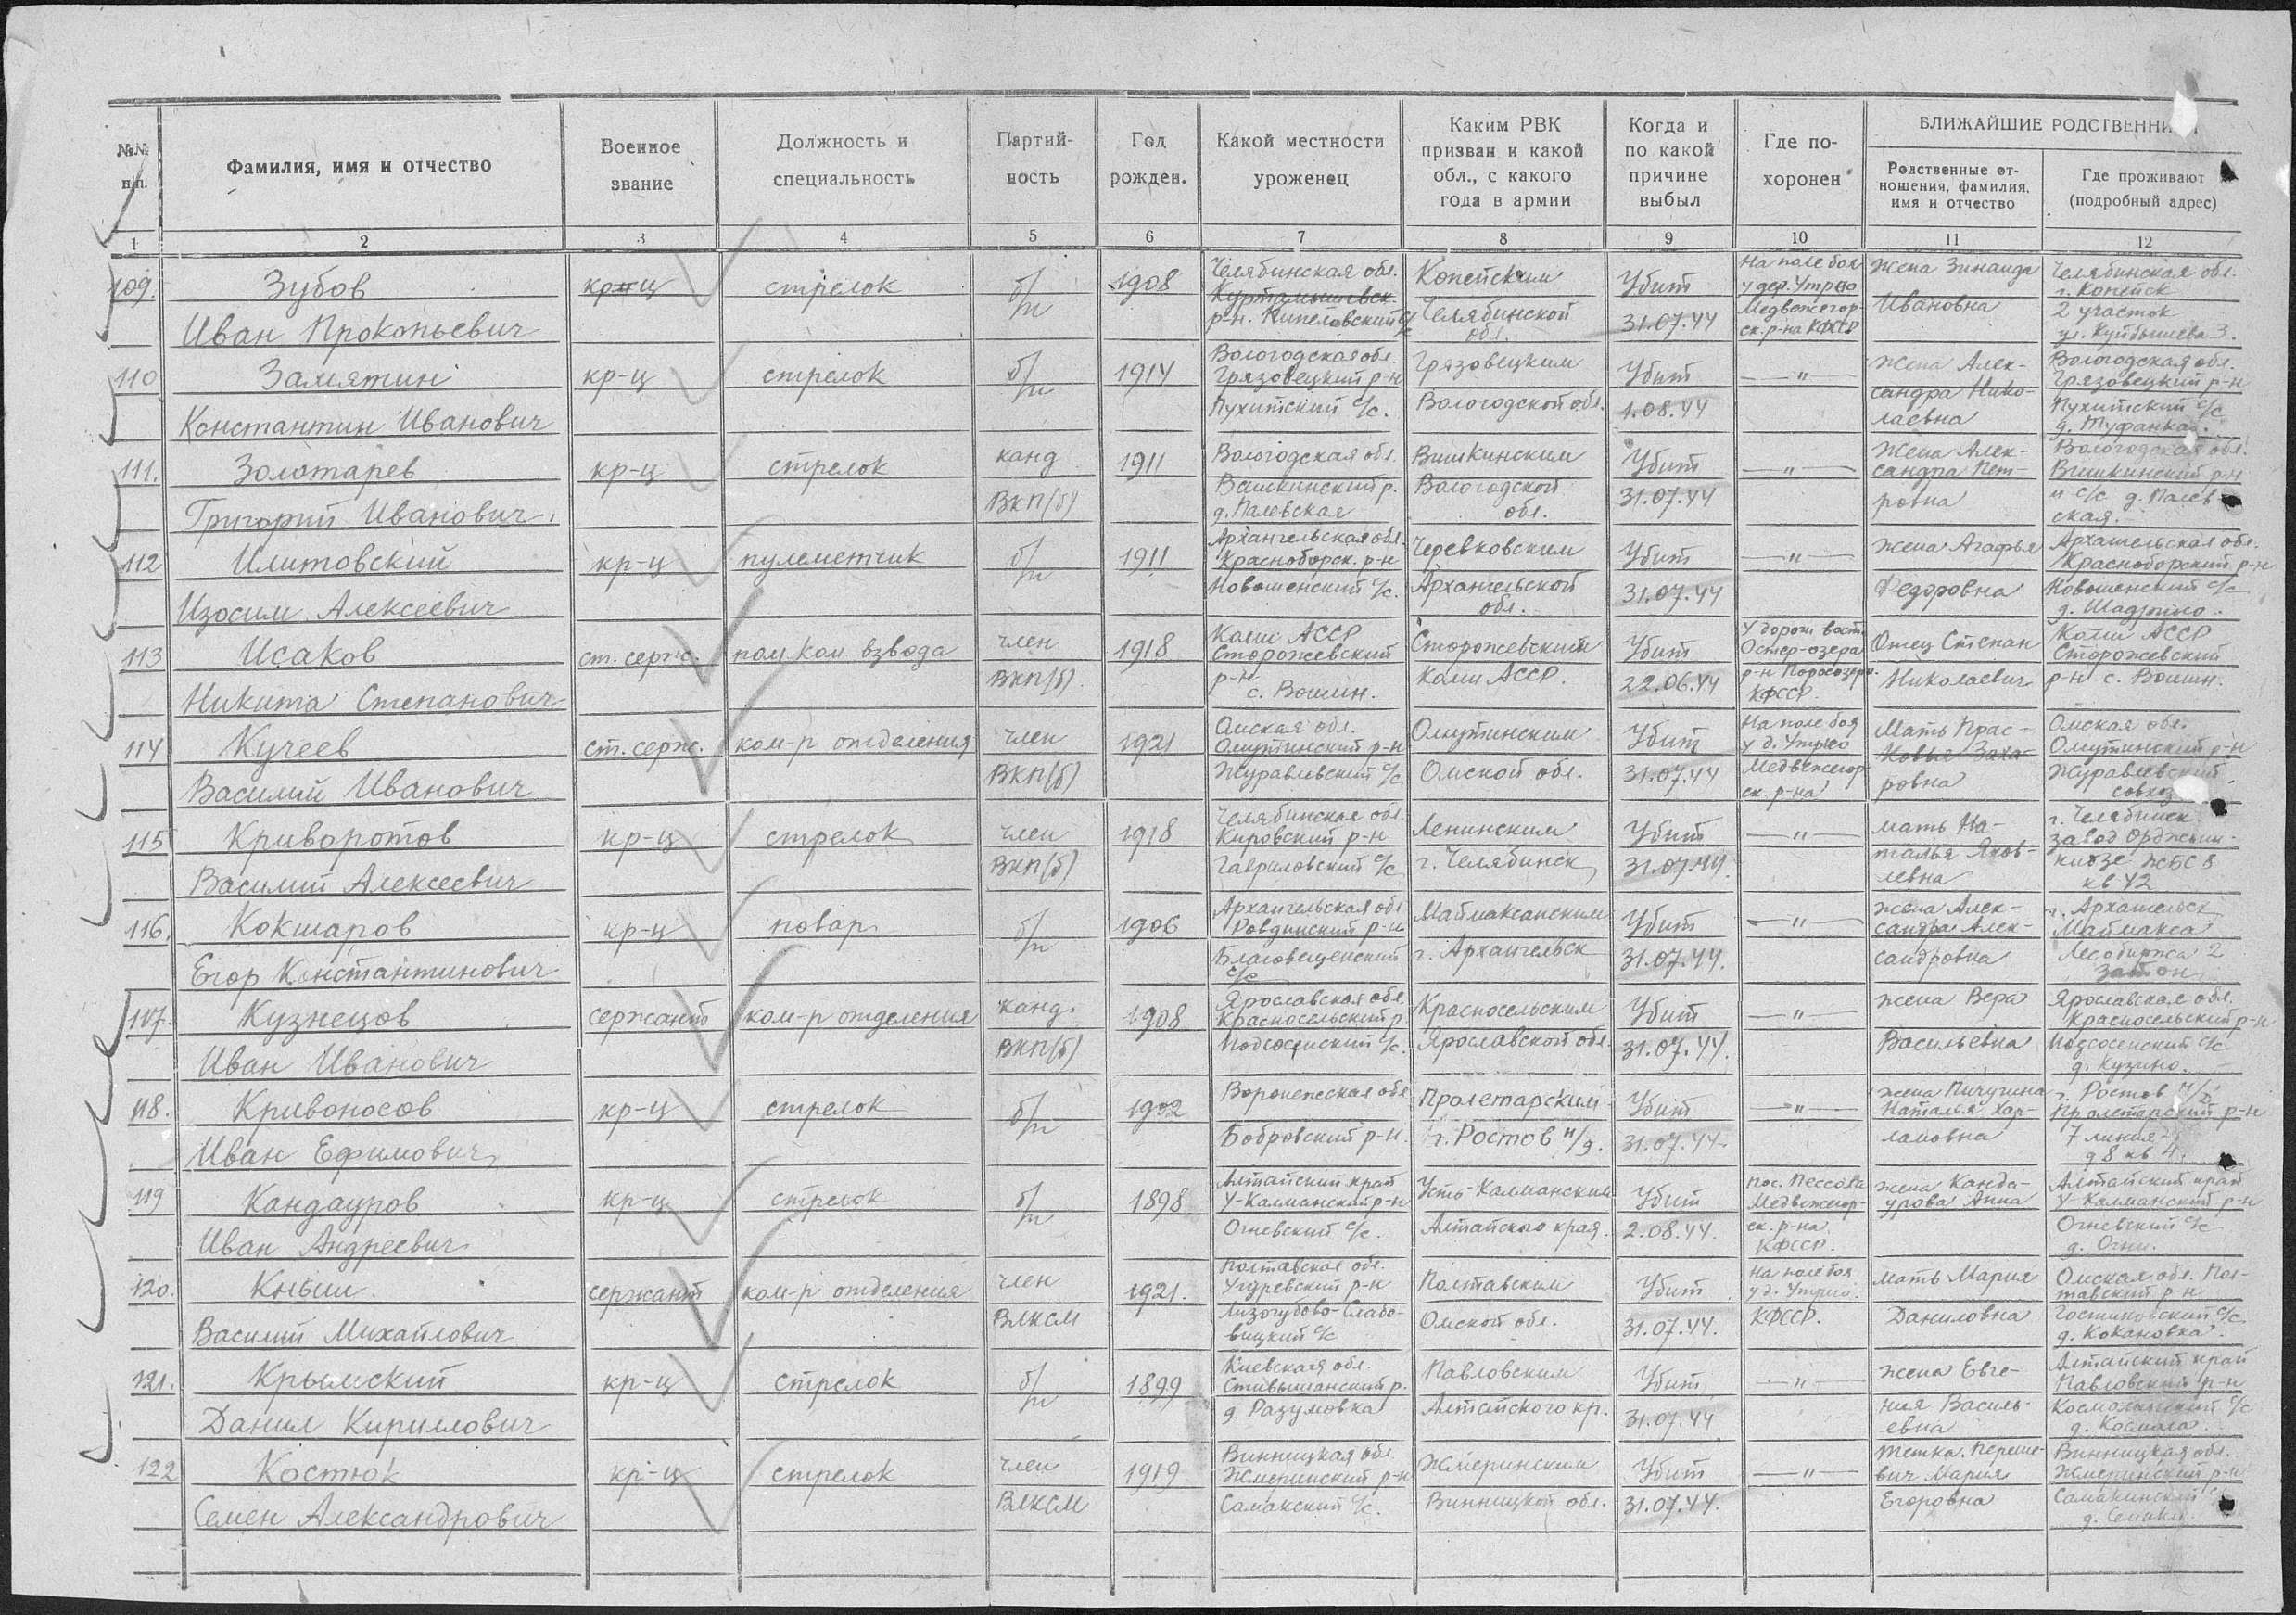 №№ п/п.
Фамилия, имя и отчество
Военное звание
Должность и специальность
Партийность
Год рожден.
Какой местности уроженец
Каким РВК призван и какой обл., с какого года в армии
Когда и по какой причине выбыл
Где похоронен
БЛИЖАЙШИЕ РОДСТВЕННИ
Родственные отношения, фамилия, имя и отчество
Где проживают (подробный адрес)
1 2 3 4 5 6 7 8 9 10 11 12
109. Зубов кр-ц стрелок б/п 1908 Челябинская обл. Копейским Убит На поле боя Жена Зинаида Челябинская обл.
у дер. Утрио г. Копейск
Иван Прокопьевич р-н. Кипеловский с/с Челябинской обл. 31.07.44 Медвежегорск. р-на КФССР Ивановна 2 участок
ул. Куйбышева 3.
110 Замятин кр-ц стрелок б/п 1914 Вологодская обл. Грязовецким Убит —"— Жена Алек- Вологодская обл.
Грязовецкий р-н сандра Нико- Грязовецкий р-н
Константин Иванович Пухитский с/с. Вологодской обл. 1.08.44 лаевна Пухитский с/с
д. Туфанка.
111. Золотарев кр-ц стрелок канд 1911 Вологодская обл. Вашкинским Убит —"— Жена Алек- Вологодская обл.
Вашкинский р. сандра Пет- Вашкинский р-н
Григорий Иванович. ВКП(б) д. Палевская Вологодской обл. 31.07.44 ровна с/с д. Палев
ская.
112 Илитовский кр-ц пулеметчик б/п 1911 Архангельская обл. Черевковским Убит —"— Жена Агафья Архангельская обл.
Красноборск. р-н Красноборский р-н
Изосим Алексеевич Новошенский с/с. Архангельской обл. 31.07.44 Федоровна Новошенский с/с
д. Шадрино.
113 Исаков ст. серж. пом. ком. взвода член 1918 Коми АССР Сторожевским Убит У дорог. вост. Отец Степан Коми АССР
Сторожевский Остер-озера Сторожевский
Никита Степанович ВКП(б). р-н с. Вомын. Коми АССР. 22.06.44 р-н Поросозеро. КФССР. Николаевич р-н с. Вомын.
114 Кучеев ст. серж. ком-р отделения член 1921 Омская обл. Омутинским Убит На поле боя Мать Прас- Омская обл.
Омутинский р-н у д. Утрио ковья Заха- Омутинский р-н
Василий Иванович ВКП(б) Журавлевский с/с. Омской обл. 31.07.44 Медвежегорск. р-на ровна Журавлевский
совхоз
115 Криворотов кр-ц стрелок член 1918 Челябинская обл. Ленинским Убит —"— мать На- г. Челябинск
Кировский р-н талья Яков- завод Орджони-
Василий Алексеевич ВКП(б) Гавриловский с/с г. Челябинск 31.07.44. левна кидзе ЖБС 8
кв 42
116. Кокшаров кр-ц повар б/п 1906 Архангельская обл Маймаксанским Убит —"— жена Алек- г. Архангельск
Ровдинский р-н сандра Алек- Маймакса
Егор Константинович Благовещенский с/с г. Архангельск 31.07.44. сандровна Лесобиржа 2
Затон
117. Кузнецов сержант ком-р отделения канд. 1908 Ярославская обл. Красносельским Убит —"— жена Вера Ярославская обл.
Красносельский р. Красносельский р-н
Иван Иванович ВКП(б) Подсосенский с/с. Ярославской обл. 31.07.44. Васильевна Подсосенский с/с
д. Кузино.
118. Кривоносов кр-ц стрелок б/п 1902 Воронежская обл Пролетарским Убит —"— жена Пичугина г. Ростов н/д
Наталья Хар- Пролетарский р-н
Иван Ефимович Бобровский р-н. г. Ростов н/д. 31.07.44. лановна 7 линия
д 8 кв 4.
119 Кандауров кр-ц стрелок б/п 1898 Алтайский край Усть-Калманским Убит пос. Пессова жена Канда- Алтайский край
У-Калманский р-н Медвежегор- урова Анна У-Калманский р-н
Иван Андреевич Огневский с/с. Алтайского края. 2.08.44. ск. р-на. КФССР. Огневский с/с
д. Огни.
120. Кныш. сержант ком-р отделения член 1921. Полтавская обл. Полтавским Убит На поле боя мать Мария Омская обл. Пол-
р-н у д. Утрио. тавский р-н
Василий Михайлович ВЛКСМ Лизогубово-Слабо- Омской обл. 31.07.44. КФССР. Даниловна с/с.
вицкий с/с д. Кокановка.
121. Крымский кр-ц стрелок б/п 1899 Киевская обл. Павловским Убит —"— жена Евге- Алтайский край
Павловский р-н
Данил Кириллович д. Разумовка Алтайского кр. 31.07.44 ния Василь- с/с
евна
122 Костюк кр-ц стрелок член 1919 Винницкая обл Жмеринским Убит —"— тетка Винницкая обл.
Жмеринский р-н вич Мария Жмеринский р-н
Семен Александрович ВЛКСМ Самакский с/с. Винницкой обл. 31.07.44. Егоровна Самакинский